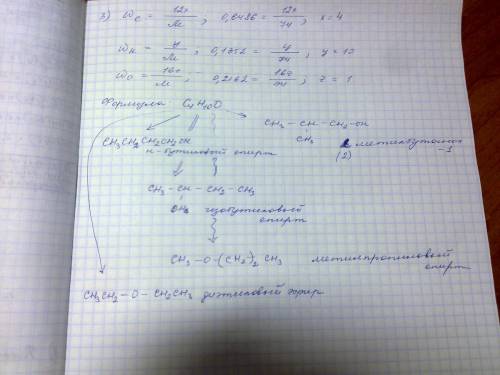 3) ω_C = 12x/M ; 0,6486 = 12x/74 ; x = 4
ω_H = y/M ; 0,1352 = y/74 ; y = 10
ω_O = 16z/M ; 0,2162 = 16z/74 ; z = 1
Формула C₄H₁₀O
CH₃ – CH – CH₂ – OH
CH₃
CH₃CH₂CH₂CH₂OH
(2) метилбутанол -1
н-бутиловый спирт
CH₃ – CH – CH₂ – CH₃
OH изобутиловый
спирт
CH₃ – O – (CH₂)₂ CH₃ метилпропиловый
спирт
CH₃CH₂ – O – CH₂CH₃ диэтиловый эфир